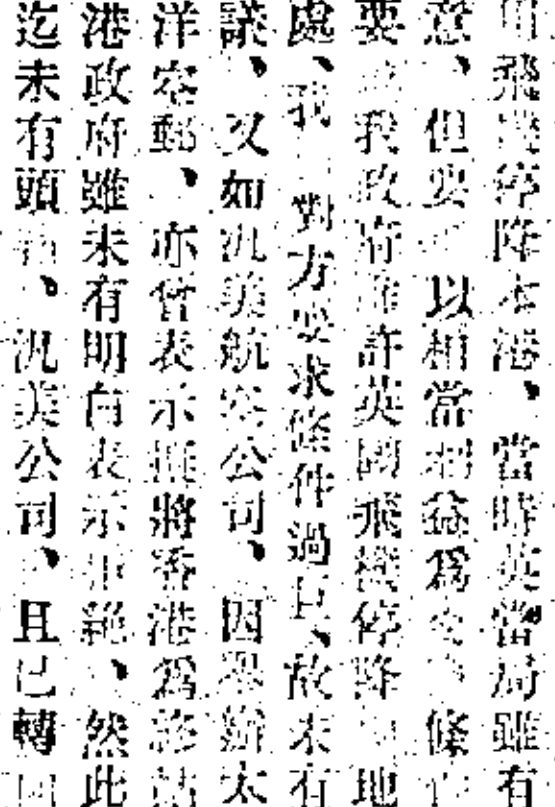 飛機停降本港、當時英當局雖有
意、但要以相當利益爲交換條件
要我政府准許英國飛機停降地
處、我對方要求條件過巨、故未有
議、又如汎美航空公司、因舉辦太
洋空郵、亦曾表示擬將香港爲終站
港政府雖未有明白表示拒絕、然此
迄未有頭緒、汎美公司、且已轉